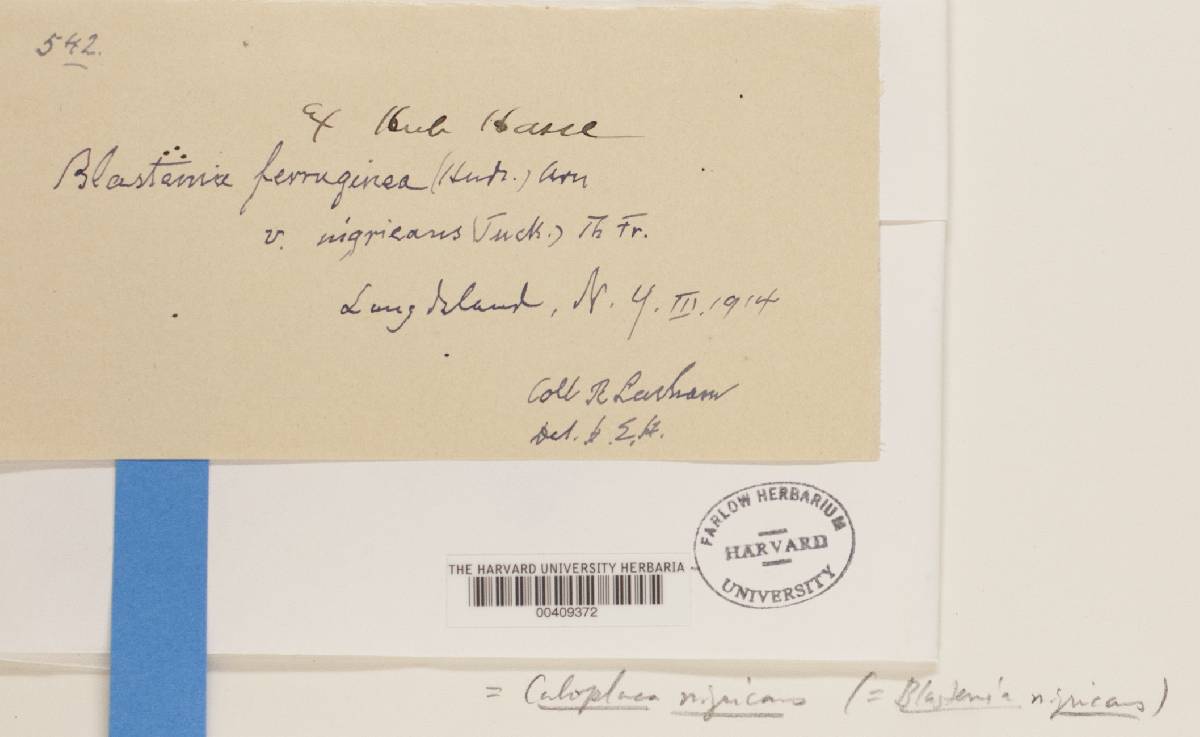 542.
Ex Herb Hasse
Blastenia ferruginea (Huds.) Arn
v. nigricans (Tuck.) Th Fr.
Long Island, N. Y. III. 1914
Coll R Latham
Det. H. E. H.
FARLOW HERBARIUM
HARVARD
UNIVERSITY
THE HARVARD UNIVERSITY HERBARIA
00409372
= Caloplaca nigricans (= Blastenia nigricans)